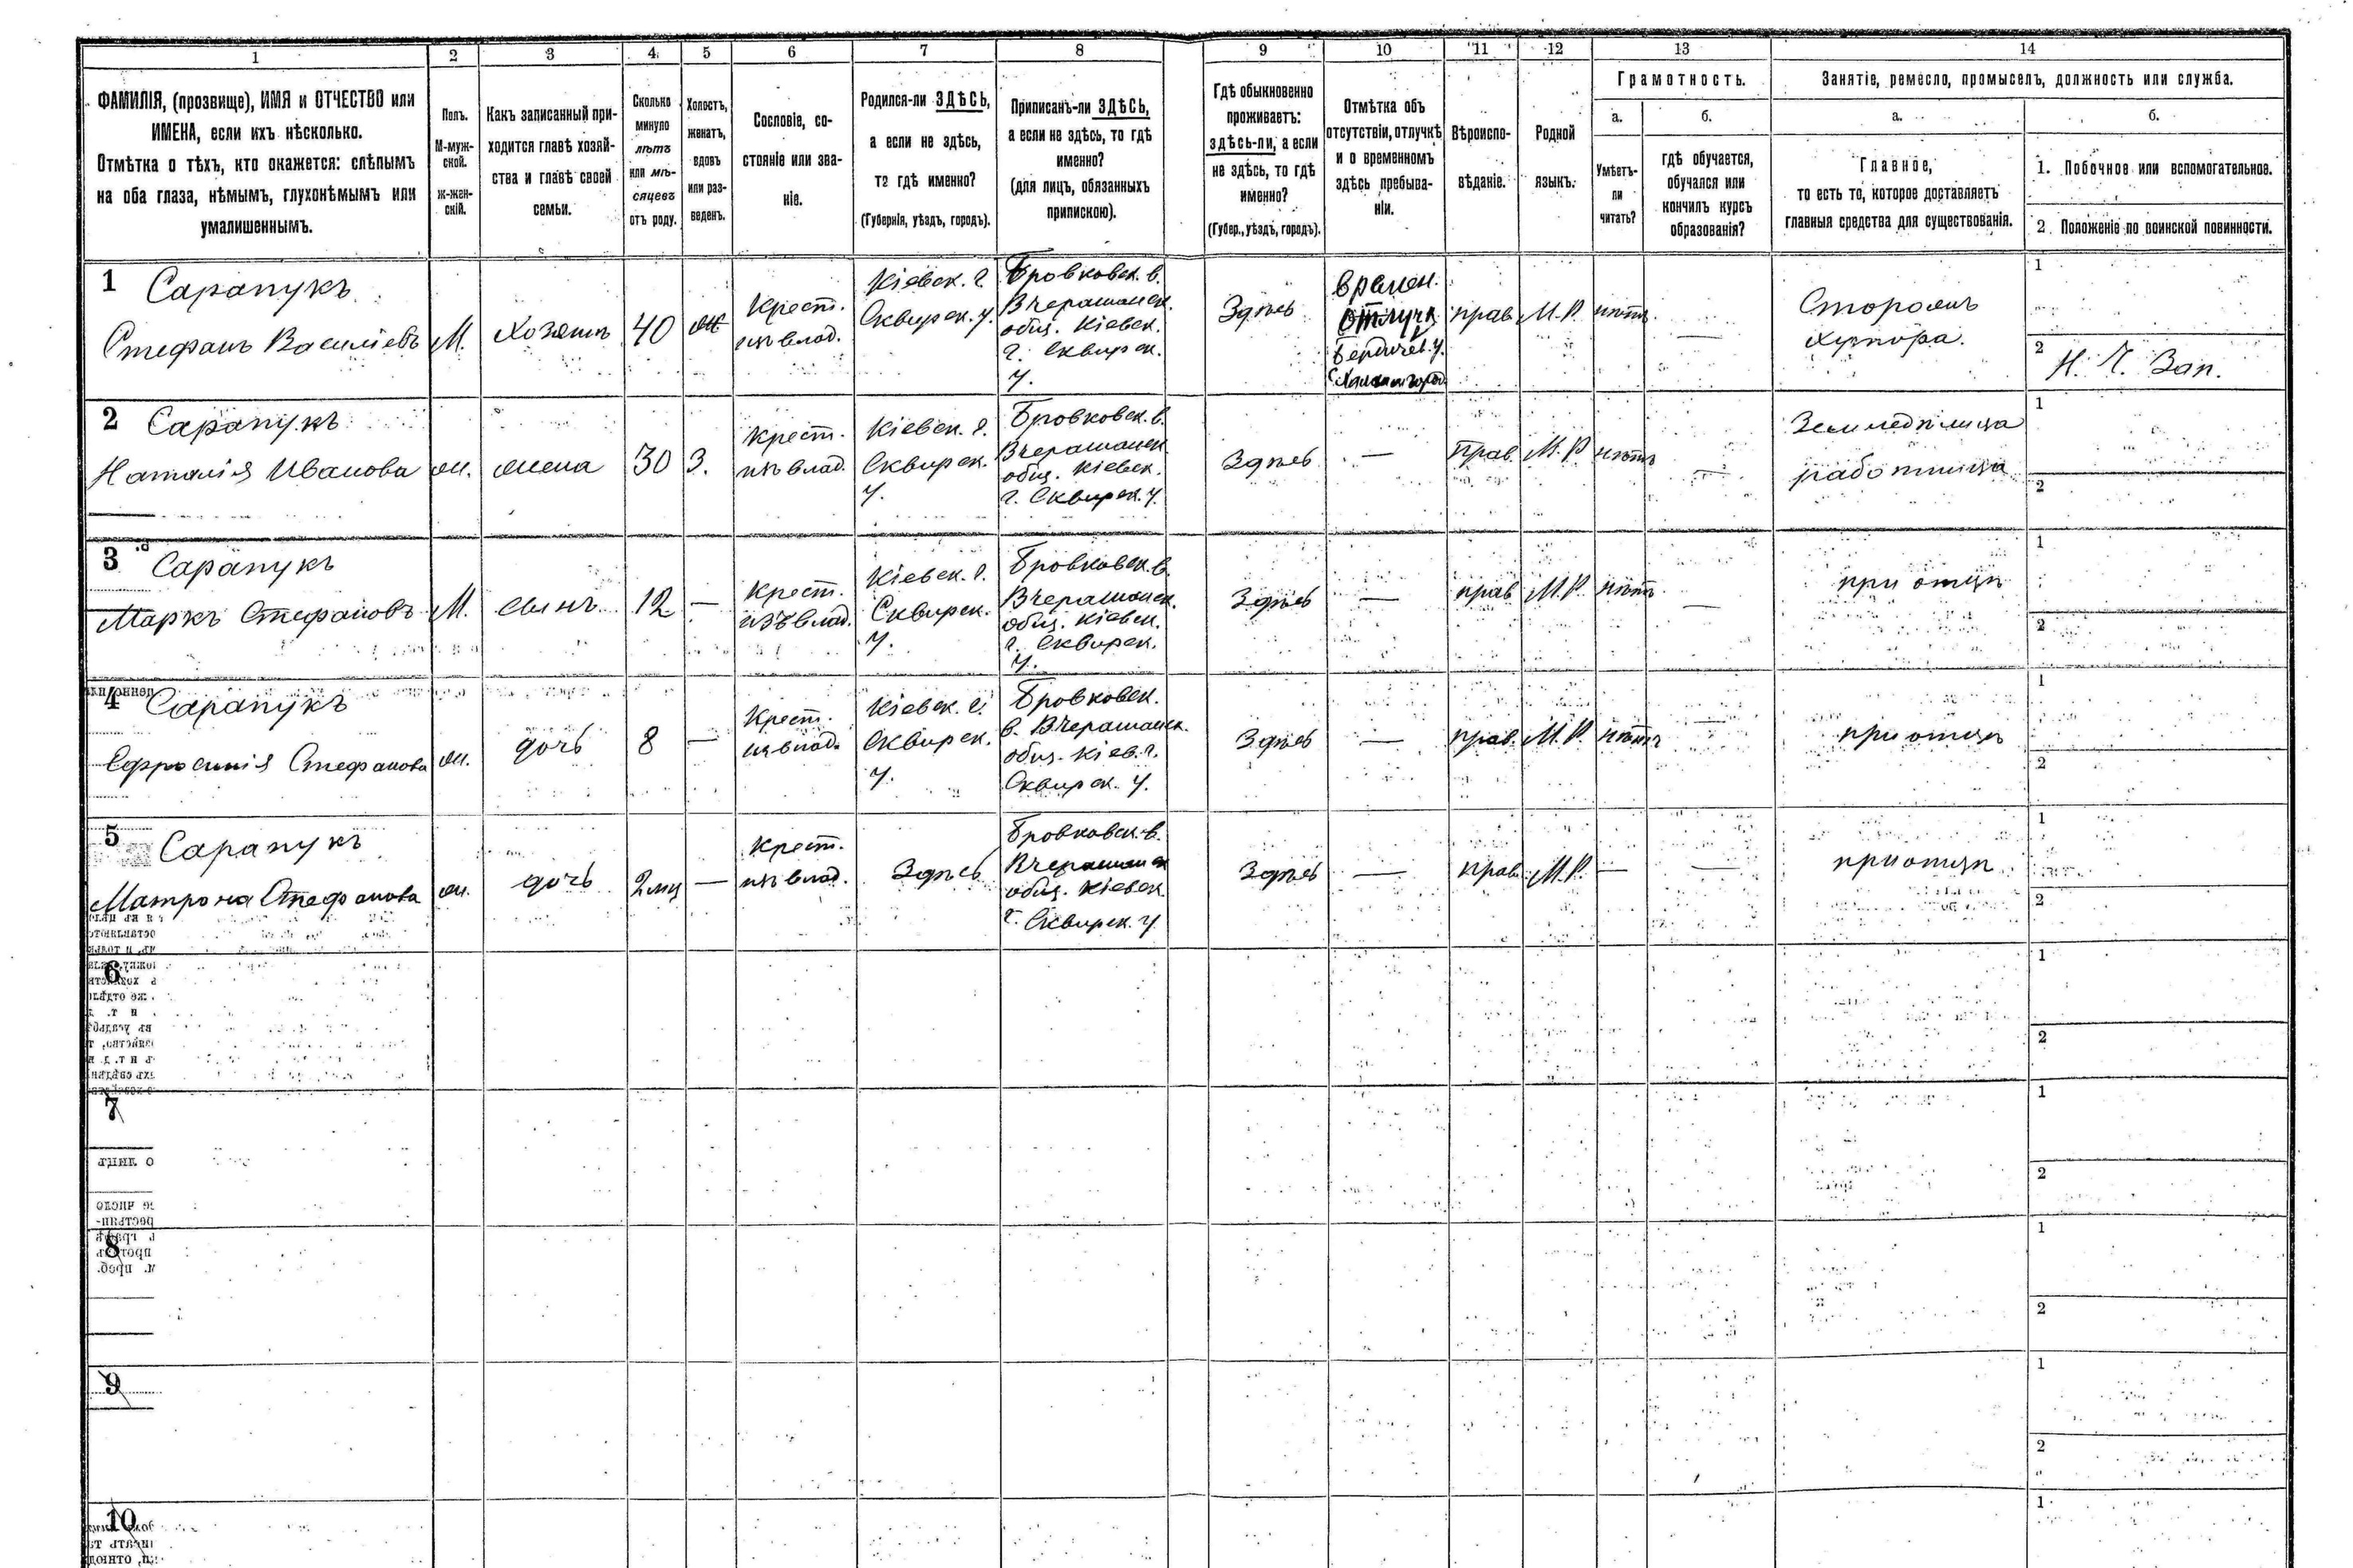 1
2
3
4
5
6
7
8
9
10
11
12
13
14
ФАМИЛІЯ, (прозвище), ИМЯ и ОТЧЕСТВО или
ИМЕНА, если ихъ нѣсколько.
Отмѣтка о тѣхъ, кто окажется: слѣпымъ
на оба глаза, нѣмымъ, глухонѣмымъ или
умалишеннымъ.
Полъ.
М-муж-
ской.
ж-жен-
скій.
Какъ записанный при-
ходится главѣ хозяй-
ства и главѣ своей
семьи.
Сколько
минуло
лѣтъ
или мѣ-
сяцевъ
отъ роду.
Холостъ,
женатъ,
вдовъ
или раз-
веденъ.
Сословіе, со-
стояніе или зва-
ніе.
Родился-ли ЗДѢСЬ,
а если не здѣсь,
то гдѣ именно?
(Губернія, уѣздъ, городъ).
Приписанъ-ли ЗДѢСЬ,
а если не здѣсь, то гдѣ
именно?
(для лицъ, обязанныхъ
припискою).
Гдѣ обыкновенно
проживаетъ:
здѣсь-ли, а если
не здѣсь, то гдѣ
именно?
(Губер., уѣздъ, городъ).
Отмѣтка объ
отсутствіи, отлучкѣ
и о временномъ
здѣсь пребыва-
ніи.
Вѣроиспо-
вѣданіе.
Родной
языкъ.
Грамотность.
а.
Умѣетъ-
ли
читать?
б.
гдѣ обучается,
обучался или
кончилъ курсъ
образованія?
Занятіе, ремесло, промыселъ, должность или служба.
а.
Главное,
то есть то, которое доставляетъ
главныя средства для существованія.
б.
1. Побочное или вспомогательное.
2. Положеніе по воинской повинности.
1 Сарапукъ
Стефанъ Василіевъ
М.
Хозяинъ
40
ж
Крест.
изъ влад.
Кіевск. г.
Сквирск. у.
Бровковск. в.
Вчерашанск.
общ. Кіевск.
г. Сквирск.
у.
Здѣсь
Времен.
отлучк
Бердичев. у.
прав.
М.Р.
нѣтъ
—
Сторожъ
хутора.
1
2
Н. Ч. Зап.
2 Сарапукъ
Наталія Иванова
ж.
жена
30
З.
Крест.
изъ влад.
Кіевск. г.
Сквирск.
у.
Бровковск. в.
Вчерашанск.
общ. Кіевск.
г. Сквирск. у.
Здѣсь
—
Прав.
М.Р.
нѣтъ
—
Земледѣлица
работница
1
2
3 Сарапукъ
Маркъ Стефановъ
М.
сынъ
12
—
Крест.
изъ влад.
Кіевск. г.
Сквирск.
у.
Бровковск. в.
Вчерашанск.
общ. Кіевск.
г. Сквирск.
у.
Здѣсь
—
прав
М.Р.
нѣтъ
—
при отцѣ
1
2
4 Сарапукъ
Ефросинія Стефанова
ж.
дочь
8
—
Крест.
изъ влад.
Кіевск. г.
Сквирск.
у.
Бровковск.
в. Вчерашанск.
общ. Кіев. г.
Сквирск. у.
Здѣсь
—
прав.
М.Р.
нѣтъ
—
при отцѣ
1
2
5 Сарапукъ
Матрона Стефанова
ж.
дочь
2 мц
—
Крест.
изъ влад.
Здѣсь
Бровковск. в.
Вчерашанск
общ. Кіевск.
г. Сквирск. у
Здѣсь
—
прав.
М.Р.
—
—
при отцѣ
1
2
6
1
2
7
1
2
8
1
2
9
1
2
10
1